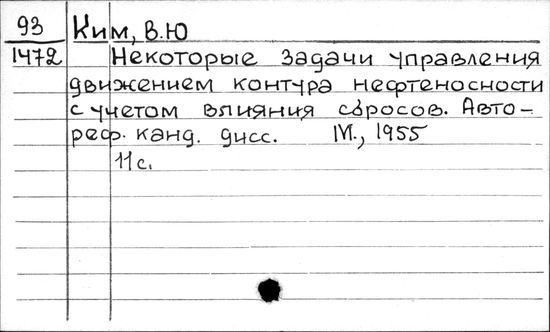 93 Ким, В.Ю
1472 Некоторые задачи управления
движением контура нефтеносности
с учетом влияния сбросов. Авто-
реф. канд. дисс. М., 1955
11 с.